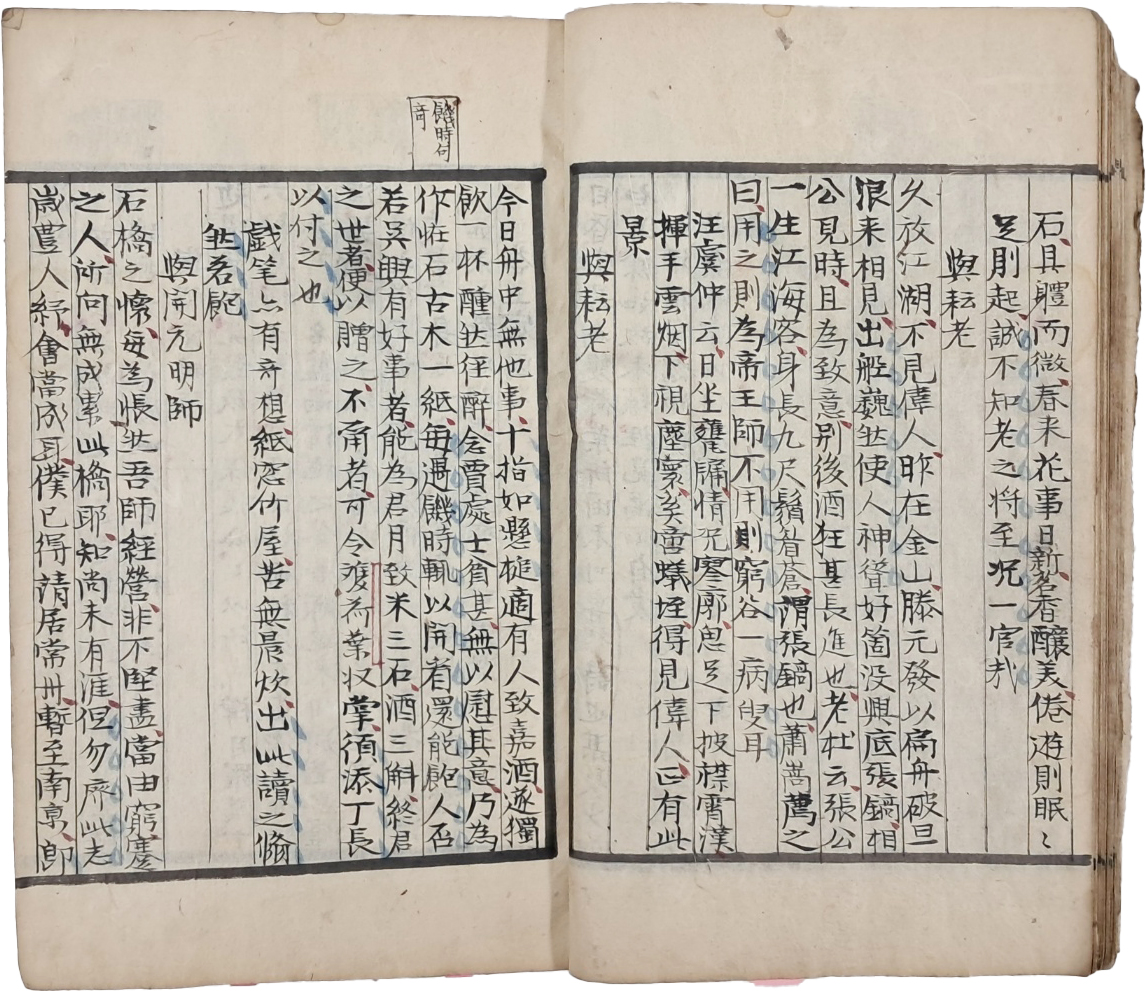 石具體而微春来花事日新茗香釀美倦遊則眠〻
足則起誠不知老之将至况一官哉
與耘老
久放江湖不見偉人昨在金山滕元發以扁舟破巨
浪来相見出船巍然使人神聳好箇没興底張鎬相
公見時且為致意别後酒狂甚長進也老杜云張公
一生江海客身長九尺鬚眉蒼謂張鎬也蕭嵩薦之
曰用之則為帝王師不用則窮谷一病叟耳
汪虞仲云日坐甕牖情况寥廓思足下披襟霄漢
揮手雲烟下視塵寰矣啻蟻垤得見偉人正有此
景
與耘老
今日舟中無他事十指如懸槌適有人致嘉酒遂獨
飲一杯醺然徑醉念賈處士貧甚無以慰其意乃為
作怪石古木一紙每遇饑時輒以開看還能飽人否
若吳興有好事者能為君月致米三石酒三斛終君
之世者便以贈之不爾者可令雙荷葉収掌須添丁長
以付之也
饑時句
奇
戱笔亦有奇想紙窓竹屋苦無晨炊出此讀之翛
然若飽
與開元明師
石橋之懷每為悵然吾師經營非不堅盡當由窮蹇
之人所向無成累此橋耶知尚未有涯但勿廃此志
歲豊人紓會當成耳僕已得請居常州暫至南京即